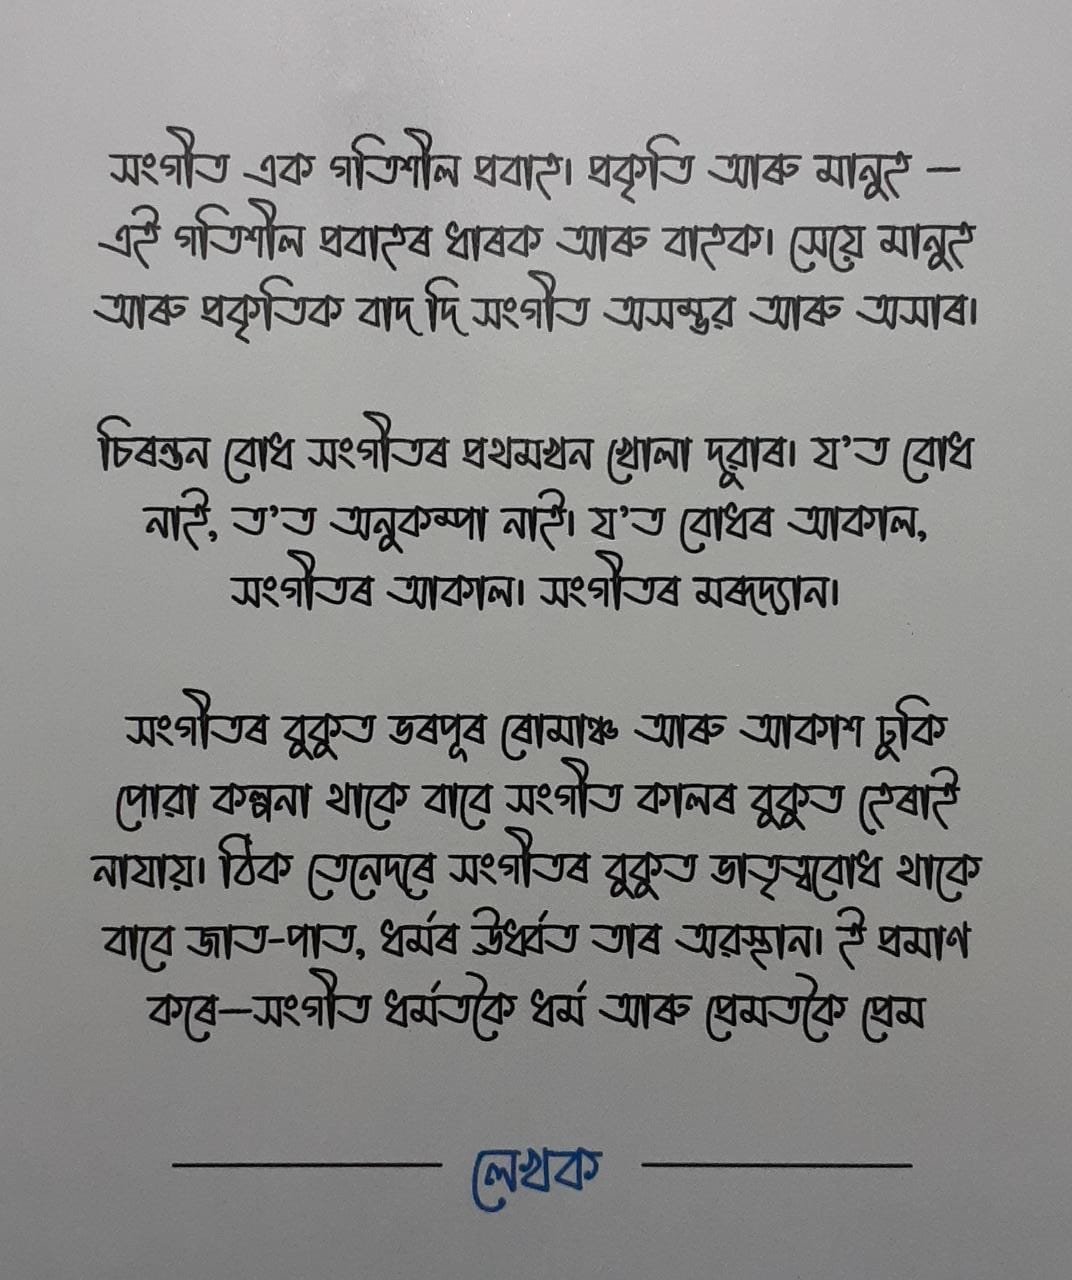 সংগীত এক গতিশীল প্ৰবাহ। প্ৰকৃতি আৰু মানুহ –
এই গতিশীল প্ৰবাহৰ ধাৰক আৰু বাহক। সেয়ে মানুহ
আৰু প্ৰকৃতিক বাদ দি সংগীত অসম্ভৱ আৰু অসাৰ।
চিৰন্তন বোধ সংগীতৰ প্ৰথমখন খোলা দুৱাৰ। য’ত বোধ
নাই, ত’ত অনুকম্পা নাই। য’ত বোধৰ আকাল,
সংগীতৰ আকাল। সংগীতৰ মৰূদ্যান।
সংগীতৰ বুকুত ভৰপূৰ ৰোমাঞ্চ আৰু আকাশ ঢুকি
পোৱা কল্পনা থাকে বাবে সংগীত কালৰ বুকুত হেৰাই
নাযায়। ঠিক তেনেদৰে সংগীতৰ বুকুত ভাতৃত্ববোধ থাকে
বাবে জাত-পাত, ধৰ্মৰ ঊৰ্ধৰ্বত তাৰ অৱস্থান। ই প্ৰমাণ
কৰে—সংগীত ধৰ্মতকৈ ধৰ্ম আৰু প্ৰেমতকৈ প্ৰেম
লেখক